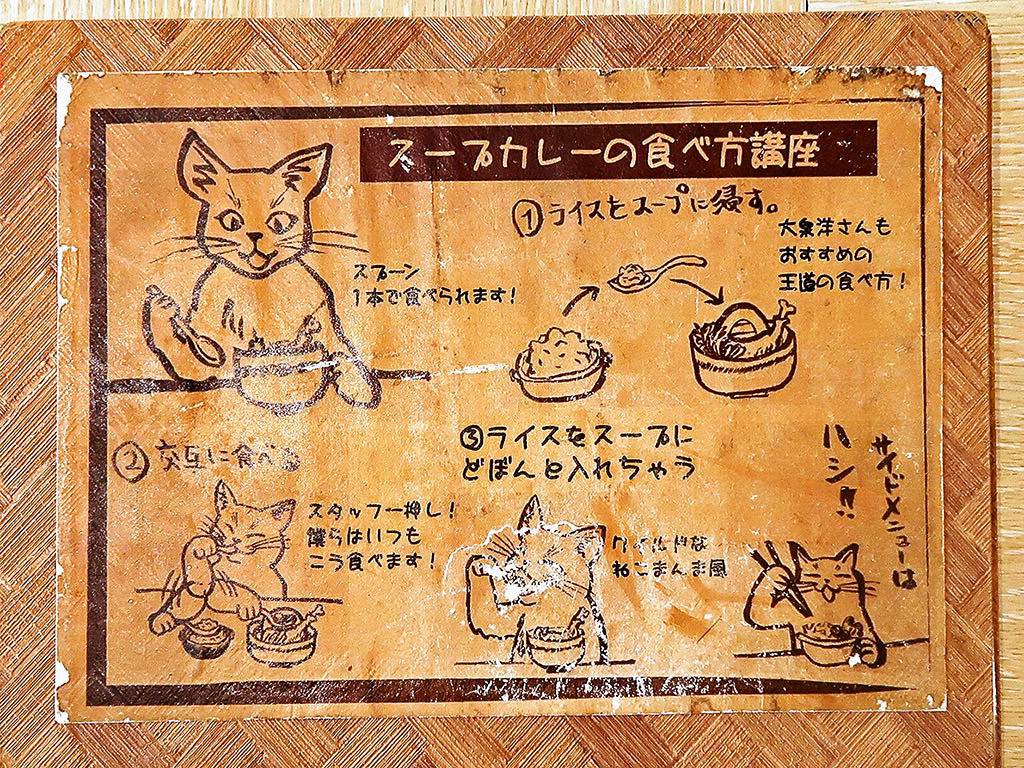 スープカレーの食べ方講座
①ライスをスープに浸す。
大泉洋さんも
おすすめの
王道の食べ方！
スプーン
1本で食べられます！
②交互に食べる
スタッフ一押し！
僕らはいつも
こう食べます！
③ライスをスープに
どぼんと入れちゃう
ワイルドな
ねこまんま風
サイドメニューは
ハシ!!